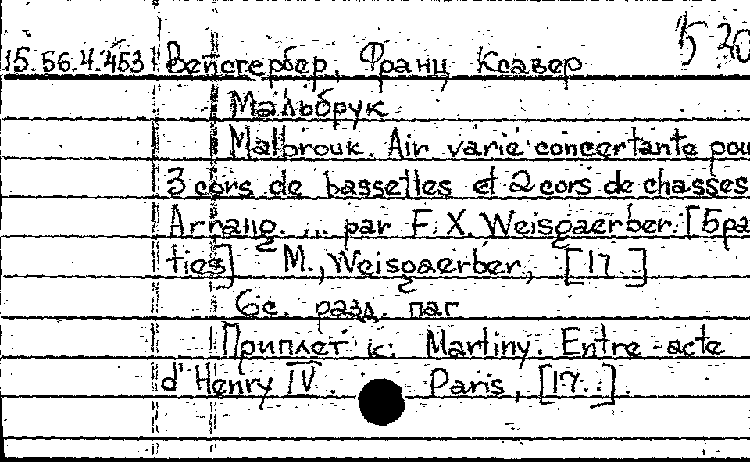 15 30
15.56.4.453 Вейсгербер, Франц Ксавер
Мальбрук
Malbrouk. Air varié concertante pou
3 cors de basselles et 2 cors de chasses
Arrang. ... par F. X. Weisgaerber. [5 pa
ties] M., Weisgaerber, [17 ]
6 с. разд. паг
Приплет к: Martiny. Entre-acte
d'Henry IV. Paris, [17..].